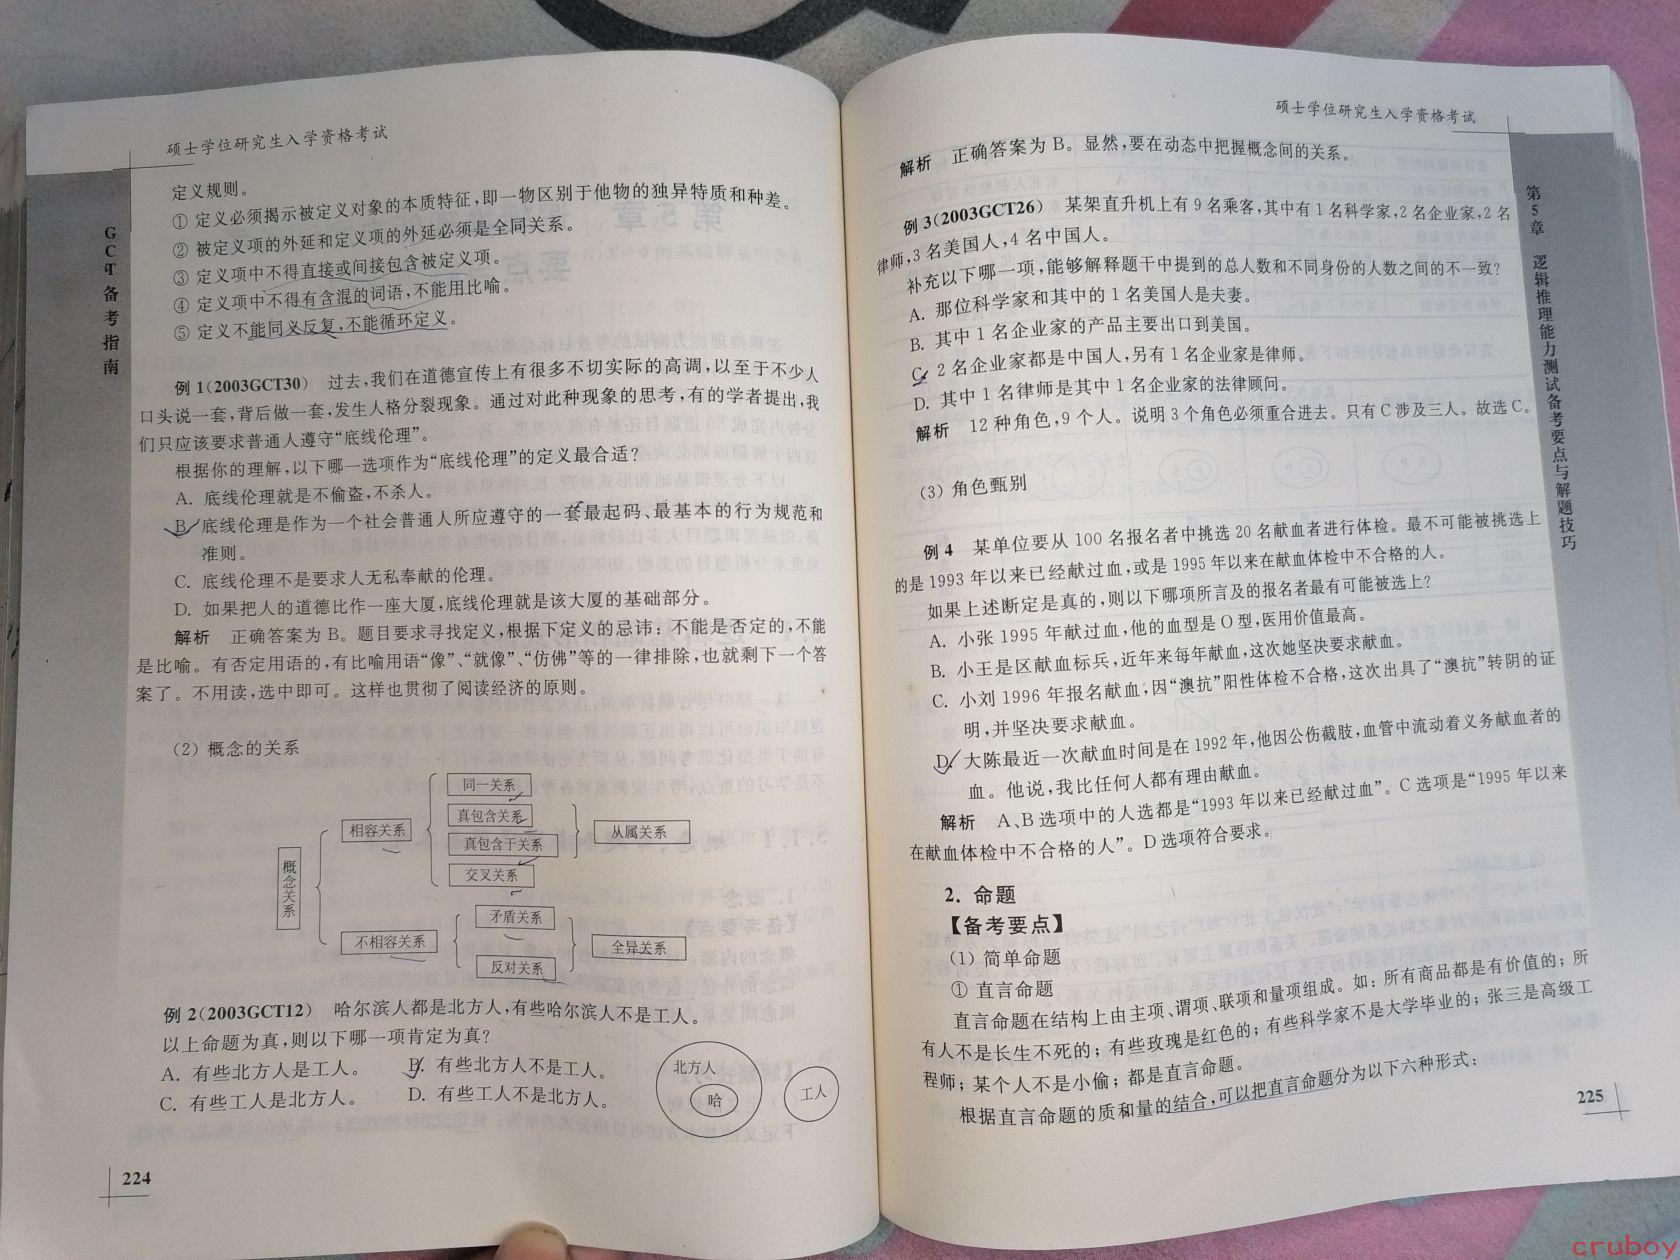 硕士学位研究生入学资格考试
GCT备考指南
定义规则。
① 定义必须揭示被定义对象的本质特征,即一物区别于他物的独异特质和种差。
② 被定义项的外延和定义项的外延必须是全同关系。
③ 定义项中不得直接或间接包含被定义项。
④ 定义项中不得有含混的词语,不能用比喻。
⑤ 定义不能同义反复,不能循环定义。
例 1(2003GCT30) 过去,我们在道德宣传上有很多不切实际的高调,以至于不少人
口头说一套,背后做一套,发生人格分裂现象。通过对此种现象的思考,有的学者提出,我
们只应该要求普通人遵守“底线伦理”。
根据你的理解,以下哪一选项作为“底线伦理”的定义最合适?
A. 底线伦理就是不偷盗,不杀人。
B. 底线伦理是作为一个社会普通人所应遵守的一套最起码、最基本的行为规范和
准则。
C. 底线伦理不是要求人无私奉献的伦理。
D. 如果把人的道德比作一座大厦,底线伦理就是该大厦的基础部分。
解析 正确答案为 B。题目要求寻找定义,根据下定义的忌讳:不能是否定的,不能
是比喻。有否定用语的,有比喻用语“像”、“就像”、“仿佛”等的一律排除,也就剩下一个答
案了。不用读,选中即可。这样也贯彻了阅读经济的原则。
(2) 概念的关系
概念关系
相容关系
同一关系
真包含关系
真包含于关系
交叉关系
从属关系
不相容关系
矛盾关系
反对关系
全异关系
例 2(2003GCT12) 哈尔滨人都是北方人,有些哈尔滨人不是工人。
以上命题为真,则以下哪一项肯定为真?
A. 有些北方人是工人。 B. 有些北方人不是工人。
C. 有些工人是北方人。 D. 有些工人不是北方人。
北方人
哈
工人
224
硕士学位研究生入学资格考试
第5章 逻辑推理能力测试备考要点与解题技巧
解析 正确答案为 B。显然,要在动态中把握概念间的关系。
例 3(2003GCT26) 某架直升机上有 9 名乘客,其中有 1 名科学家,2 名企业家,2 名
律师,3 名美国人,4 名中国人。
补充以下哪一项,能够解释题干中提到的总人数和不同身份的人数之间的不一致?
A. 那位科学家和其中的 1 名美国人是夫妻。
B. 其中 1 名企业家的产品主要出口到美国。
C. 2 名企业家都是中国人,另有 1 名企业家是律师。
D. 其中 1 名律师是其中 1 名企业家的法律顾问。
解析 12 种角色,9 个人。说明 3 个角色必须重合进去。只有 C 涉及三人。故选 C。
(3) 角色甄别
例 4 某单位要从 100 名报名者中挑选 20 名献血者进行体检。最不可能被挑选上
的是 1993 年以来已经献过血,或是 1995 年以来在献血体检中不合格的人。
如果上述断定是真的,则以下哪项所言及的报名者最有可能被选上?
A. 小张 1995 年献过血,他的血型是 O 型,医用价值最高。
B. 小王是区献血标兵,近年来每年献血,这次她坚决要求献血。
C. 小刘 1996 年报名献血,因“澳抗”阳性体检不合格,这次出具了“澳抗”转阴的证
明,并坚决要求献血。
D. 大陈最近一次献血时间是在 1992 年,他因公伤截肢,血管中流动着义务献血者的
血。他说,我比任何人都有理由献血。
解析 A、B 选项中的人选都是“1993 年以来已经献过血”。C 选项是“1995 年以来
在献血体检中不合格的人”。D 选项符合要求。
2. 命题
【备考要点】
(1) 简单命题
① 直言命题
直言命题在结构上由主项、谓项、联项和量项组成。如:所有商品都是有价值的;所
有人不是长生不死的;有些玫瑰是红色的;有些科学家不是大学毕业的;张三是高级工
程师;某个人不是小偷;都是直言命题。
根据直言命题的质和量的结合,可以把直言命题分为以下六种形式:
225
cruboy